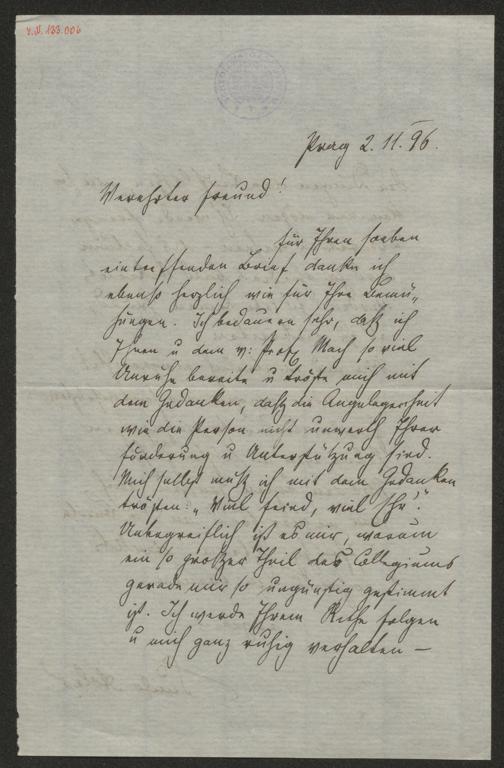 I.N. 133.006
Prag 2. 11. 96.
Verehrter Freund!
für Ihren soeben
eintreffenden Brief danke ich
ebenso herzlich wie für Ihre Bemü-
hungen. Ich bedauere sehr, daß ich
Ihnen u dem v: Prof. Mach so viel
Unruhe bereite u tröste mich mit
dem Gedanken, daß die Angelegenheit
wie die Person nicht unwerth Ihrer
Förderung u Unterstützung sind.
Mich selbst muß ich mit dem Gedanken
trösten: „Viel Feind, viel Ehr“.
Unbegreiflich ist es mir, warum
ein so großer Theil des Collegiums
gerade mir so ungünstig gestimmt
ist. Ich werde Ihrem Rathe folgen
u mich ganz ruhig verhalten —